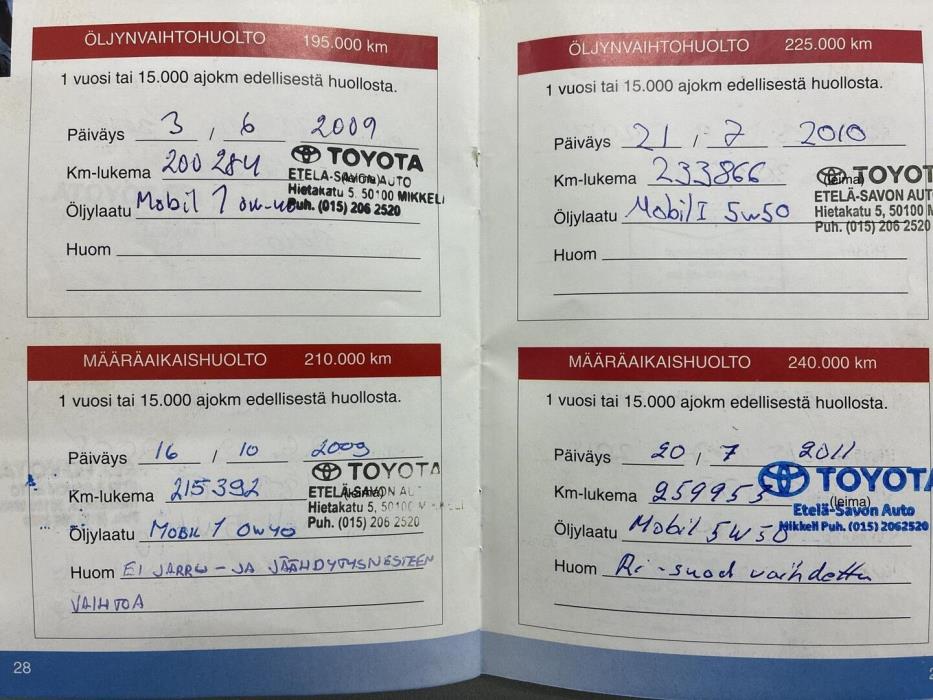 ÖLJYNVAIHTOHUOLTO 195.000 km
1 vuosi tai 15.000 ajokm edellisestä huollosta.
Päiväys 3 / 6 2009
Km-lukema 200 284
TOYOTA
ETELÄ-SAVON AUTO
Hietakatu 5, 50100 MIKKELI
Puh. (015) 206 2520
Öljylaatu Mobil 1 0W-40
Huom
MÄÄRÄAIKAISHUOLTO 210.000 km
1 vuosi tai 15.000 ajokm edellisestä huollosta.
Päiväys 16 / 10 2009
Km-lukema 215392
TOYOTA
(leima)
ETELÄ-SAVON AU
Hietakatu 5, 50100 M
Puh. (015) 206 2520
Öljylaatu MOBIL 1 0W40
Huom EI JARRU-JA JÄÄHDYTYSNESTEEN
VAIHTOA
28
ÖLJYNVAIHTOHUOLTO 225.000 km
1 vuosi tai 15.000 ajokm edellisestä huollosta.
Päiväys 21 / 7 2010
Km-lukema 233866
(leima)
TOYOT
ETELÄ-SAVON AUT
Hietakatu 5, 50100 M
Puh. (015) 206 2520
Öljylaatu Mobil I 5w50
Huom
MÄÄRÄAIKAISHUOLTO 240.000 km
1 vuosi tai 15.000 ajokm edellisestä huollosta.
Päiväys 20 / 7 2011
Km-lukema 259953
TOYOTA
(leima)
Etelä-Savon Auto
Mikkeli Puh. (015) 2062520
Öljylaatu Mobil 5W50
Huom Ri-suod vaihdettu